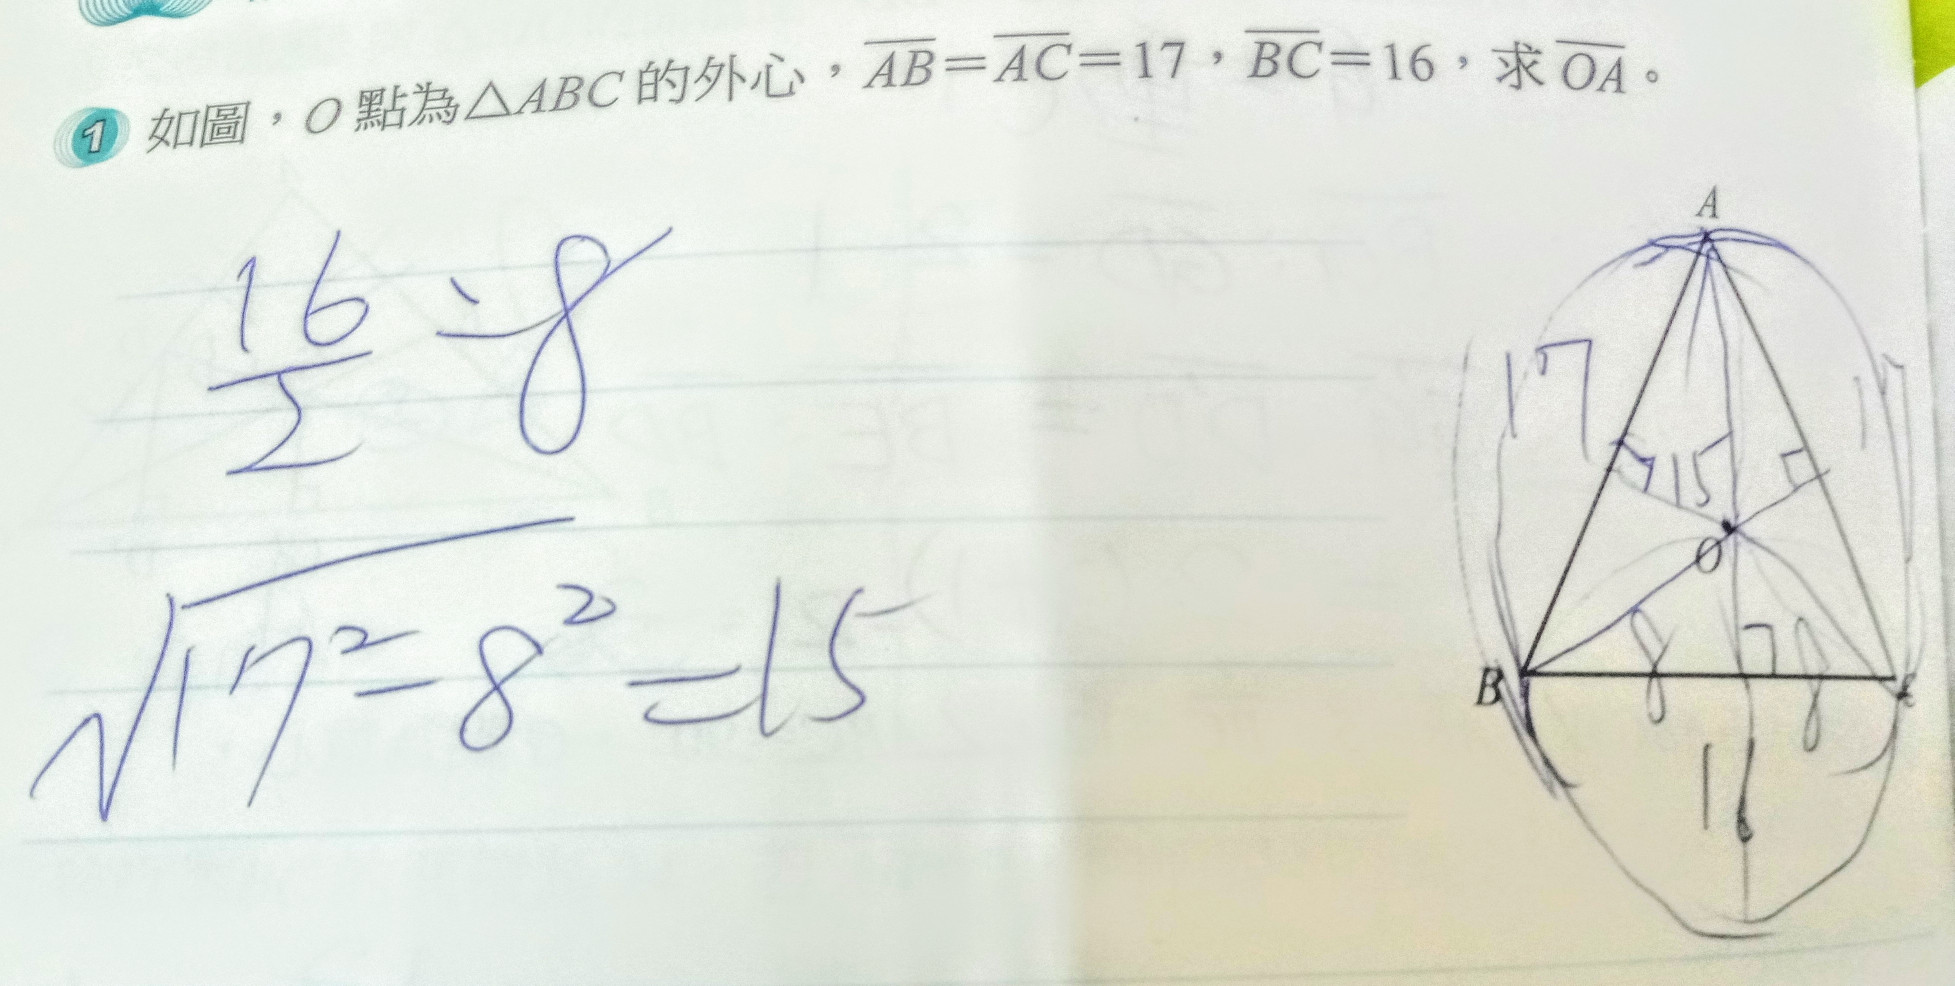 1 如圖，O 點為△ABC 的外心，AB=AC=17，BC=16，求 OA。
16/2=8
√17²-8²=15
A
17
17
15
O
8
8
B
C
16